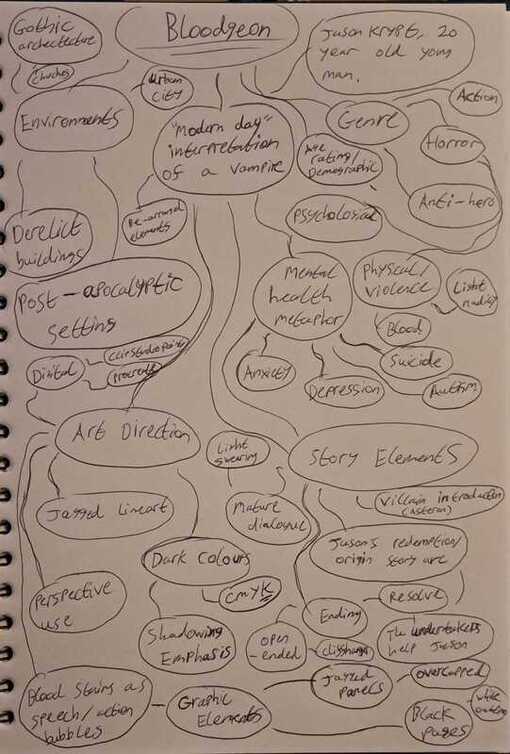 Gothic
archectecture
Bloodgeon
Jason Krypt, 20
year old young
man.
Churches
Urban
City
Environments
"Modern day"
interpretation
of a vampire
Genre
Action
Horror
Anti-hero
Age
rating/
Demographic
Re-arranged
elements
Psychological
Derelict
buildings
Mental
health
metaphor
Physical/
violence
Light
nudity
Post-apocalyptic
setting
Blood
Suicide
Anxiety
Depression
Autism
Digital
Clip Studio Paint
Procreate
Art Direction
Light
swearing
Story Elements
Jagged lineart
Mature
dialogue
Villain introduction
Jason's redemption/
origin story arc
Dark colours
CMYK
Perspective
use
Shadowing
Emphasis
Ending
Resolve
Open
-ended
Cliffhanger
The undertakers
help Jason
Blood stains as
speech/action
bubbles
Graphic
Elements
Jagged
panels
overlapped
Black
pages